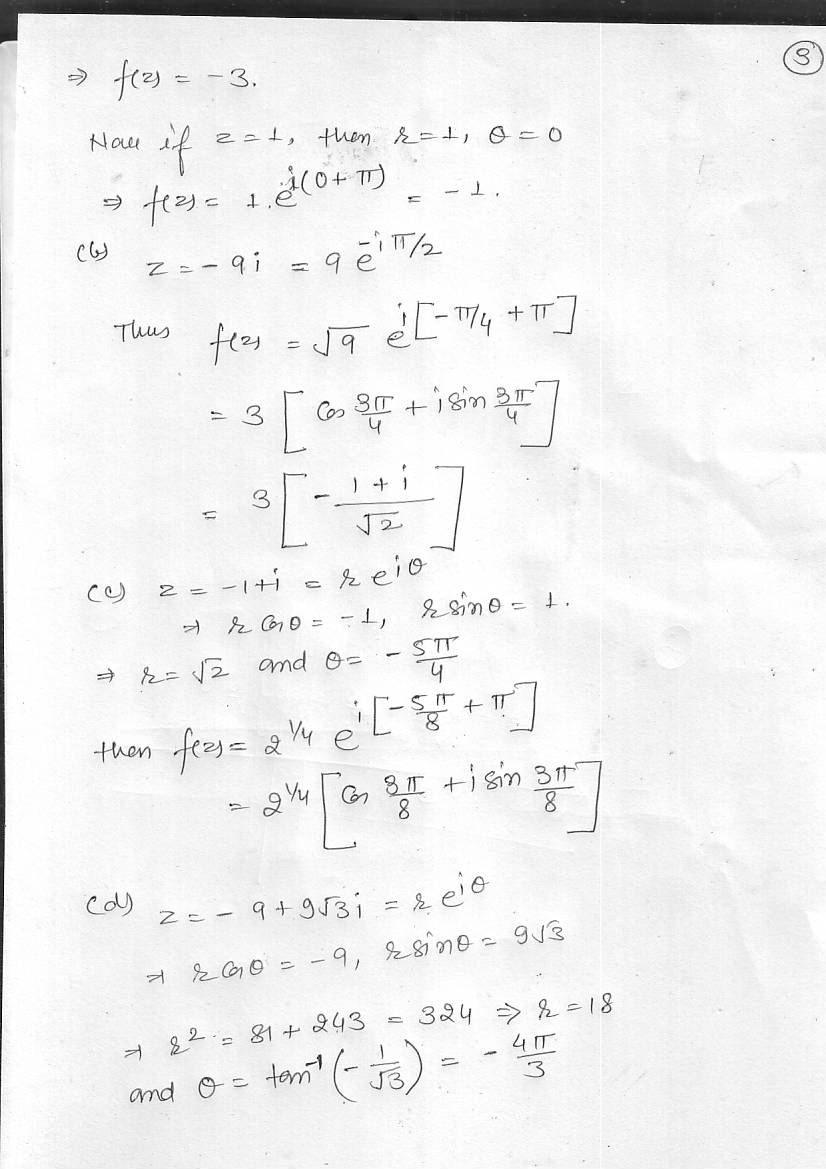 ③
⇒ f(z) = -3.
Now if z=1, then r=1, θ=0
⇒ f(z) = 1.e^{i(0+π)} = -1.
(b) z = -9i = 9 e^{-iπ/2}
Thus f(z) = √9 e^{i[-π/4 + π]}
= 3 [cos 3π/4 + i sin 3π/4]
= 3 [- (1+i)/√2]
(c) z = -1+i = r e^{iθ}
⇒ r cos θ = -1, r sin θ = 1.
⇒ r = √2 and θ = -5π/4
then f(z) = 2^{1/4} e^{i[-5π/8 + π]}
= 2^{1/4} [cos 3π/8 + i sin 3π/8]
(d) z = -9+9√3i = r e^{iθ}
⇒ r cos θ = -9, r sin θ = 9√3
⇒ r² = 81 + 243 = 324 ⇒ r = 18
and θ = tan⁻¹(-1/√3) = -4π/3